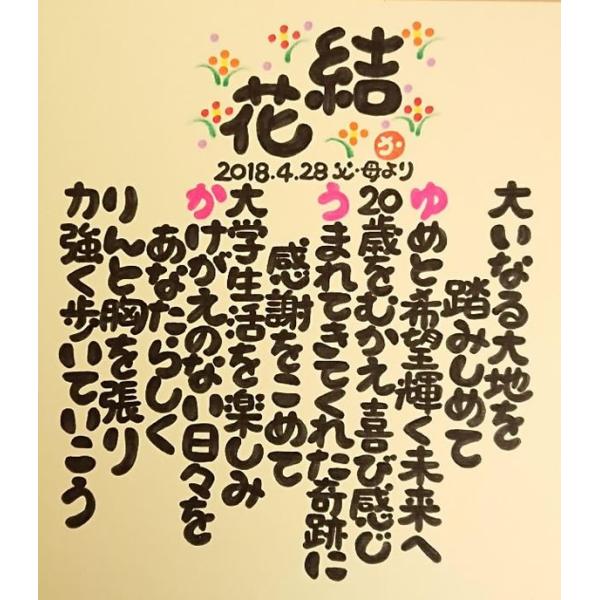 結花
2018.4.28 父・母より
大いなる大地を
踏みしめて
ゆめと希望輝く未来へ
20歳をむかえ 喜び感じ
うまれてきてくれた奇跡に
感謝をこめて
大学生活を楽しみ
かけがえのない日々を
あなたらしく
りんと胸を張り
力強く歩いていこう